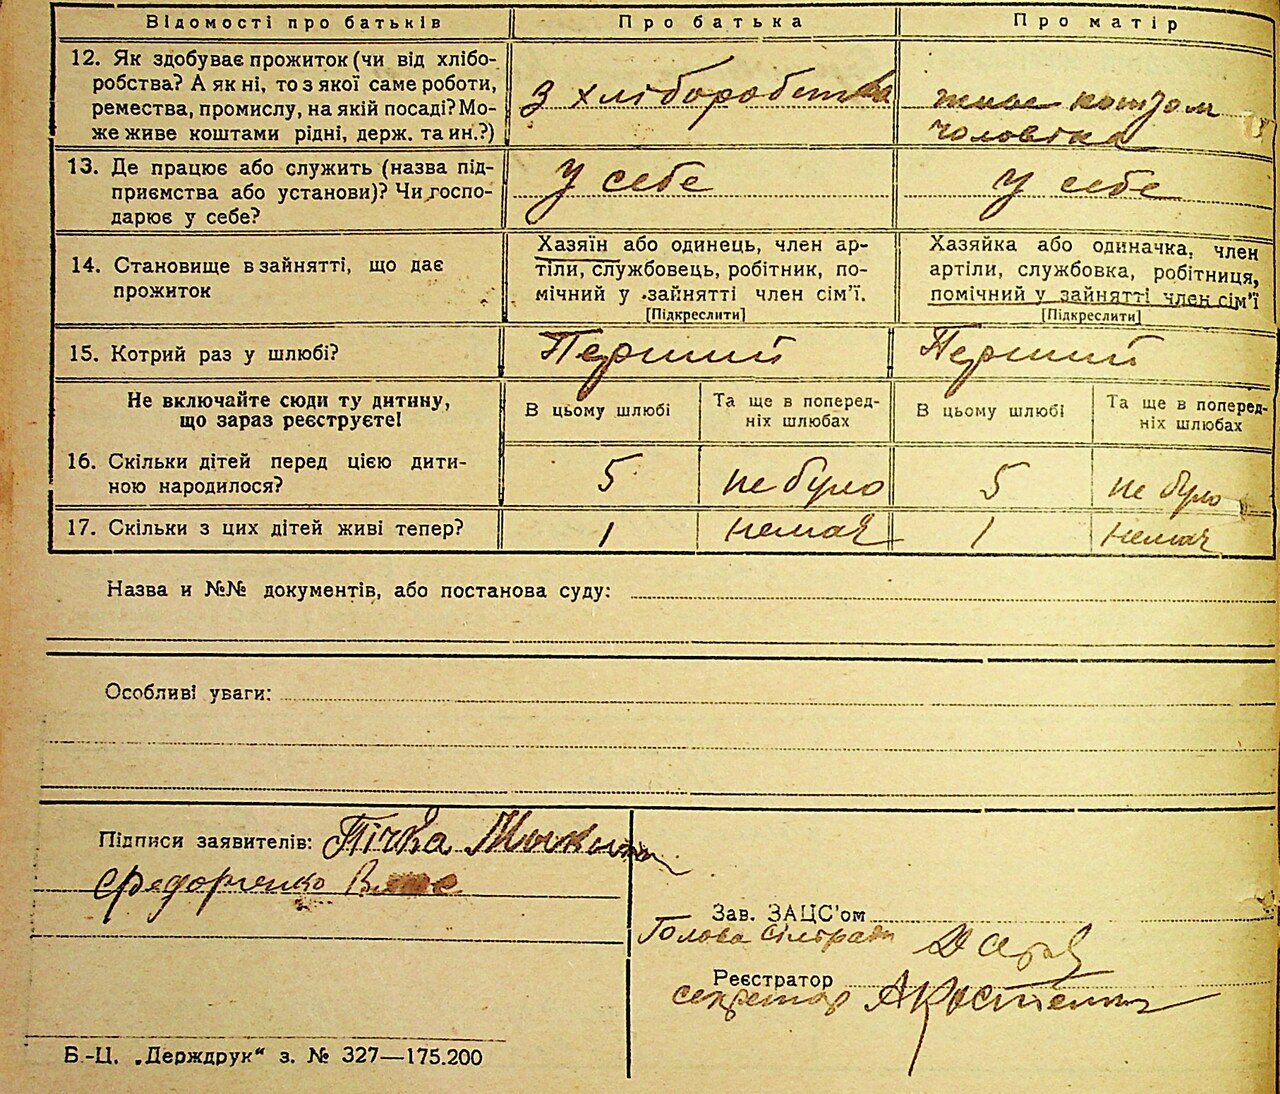 Відомості про батьків Про батька Про матір
12. Як здобуває прожиток (чи від хлібо-
робства? А як ні, то з якої саме роботи,
ремества, промислу, на якій посаді? Мо-
же живе коштами рідні, держ. та ин.?)
З хліборобства
живе коштом
чоловіка
13. Де працює або служить (назва під-
приємства або установи)? Чи госпо-
дарює у себе?
У себе
У себе
14. Становище в зайнятті, що дає
прожиток
Хазяїн або одинець, член ар-
тіли, службовець, робітник, по-
мічний у зайнятті член сім'ї.
[Підкреслити]
Хазяйка або одиначка, член
артіли, службовка, робітниця,
помічний у зайнятті член сім'ї
[Підкреслити]
15. Котрий раз у шлюбі?
Перший
Перший
Не включайте сюди ту дитину,
що зараз реєструєте!
В цьому шлюбі
Та ще в поперед-
ніх шлюбах
В цьому шлюбі
Та ще в поперед-
ніх шлюбах
16. Скільки дітей перед цією дити-
ною народилося?
5
не було
5
не було
17. Скільки з цих дітей живі тепер?
1
немає
1
немає
Назва и №№ документів, або постанова суду:
Особливі уваги:
Підписи заявителів: Пічка
Федорченко
Зав. ЗАЦС'ом
Голова Сільради
Реєстратор
секретар А Костенко
Б.-Ц. „Держдрук“ з. № 327—175.200